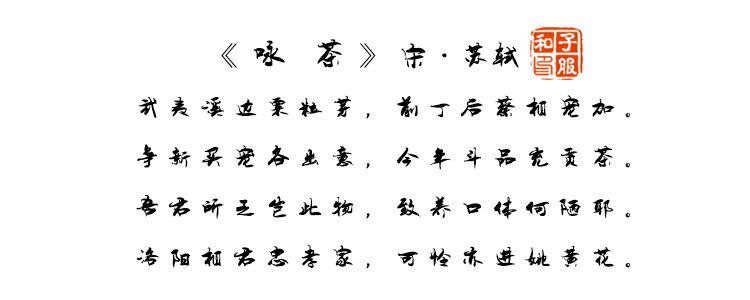 《咏 茶》宋·苏轼
和子服印
武夷溪边粟粒芽，前丁后蔡相宠加。
争新买宠各出意，今年斗品充贡茶。
吾君所乏岂此物，致养口体何陋耶。
洛阳相君忠孝家，可怜亦进姚黄花。